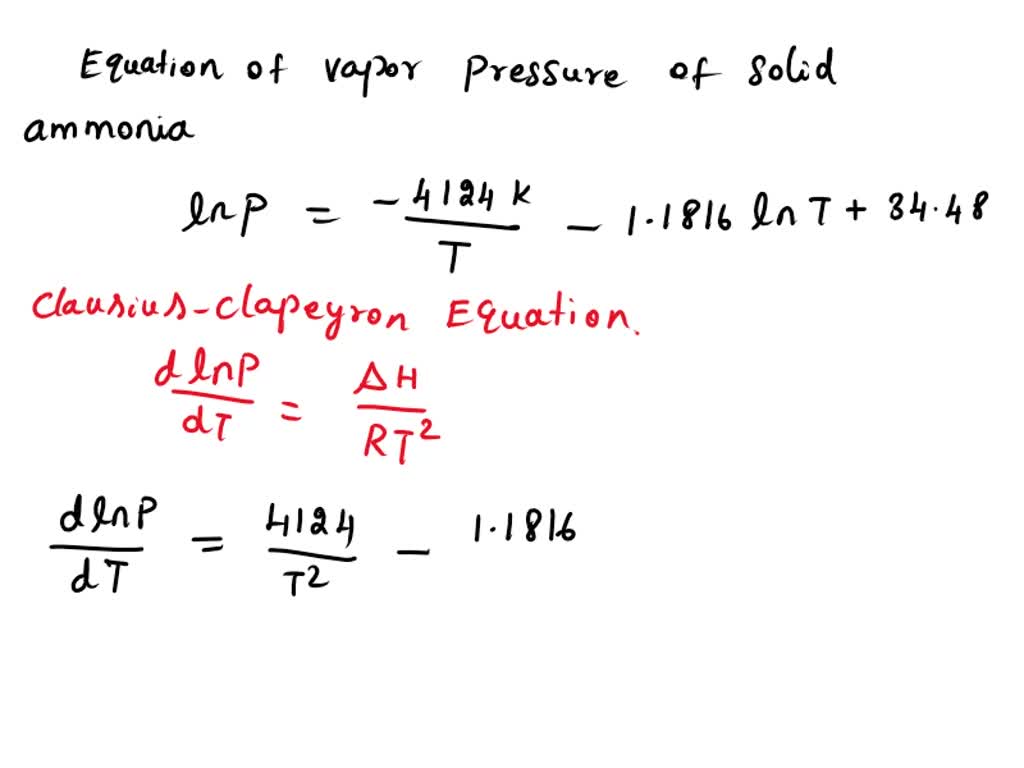 Equation of vapor pressure of solid
ammonia
ln P = - 4124 K / T - 1.1816 ln T + 34.48
Clausius-Clapeyron Equation.
d ln P / dT = ΔH / RT²
d ln P / dT = 4124 / T² - 1.1816